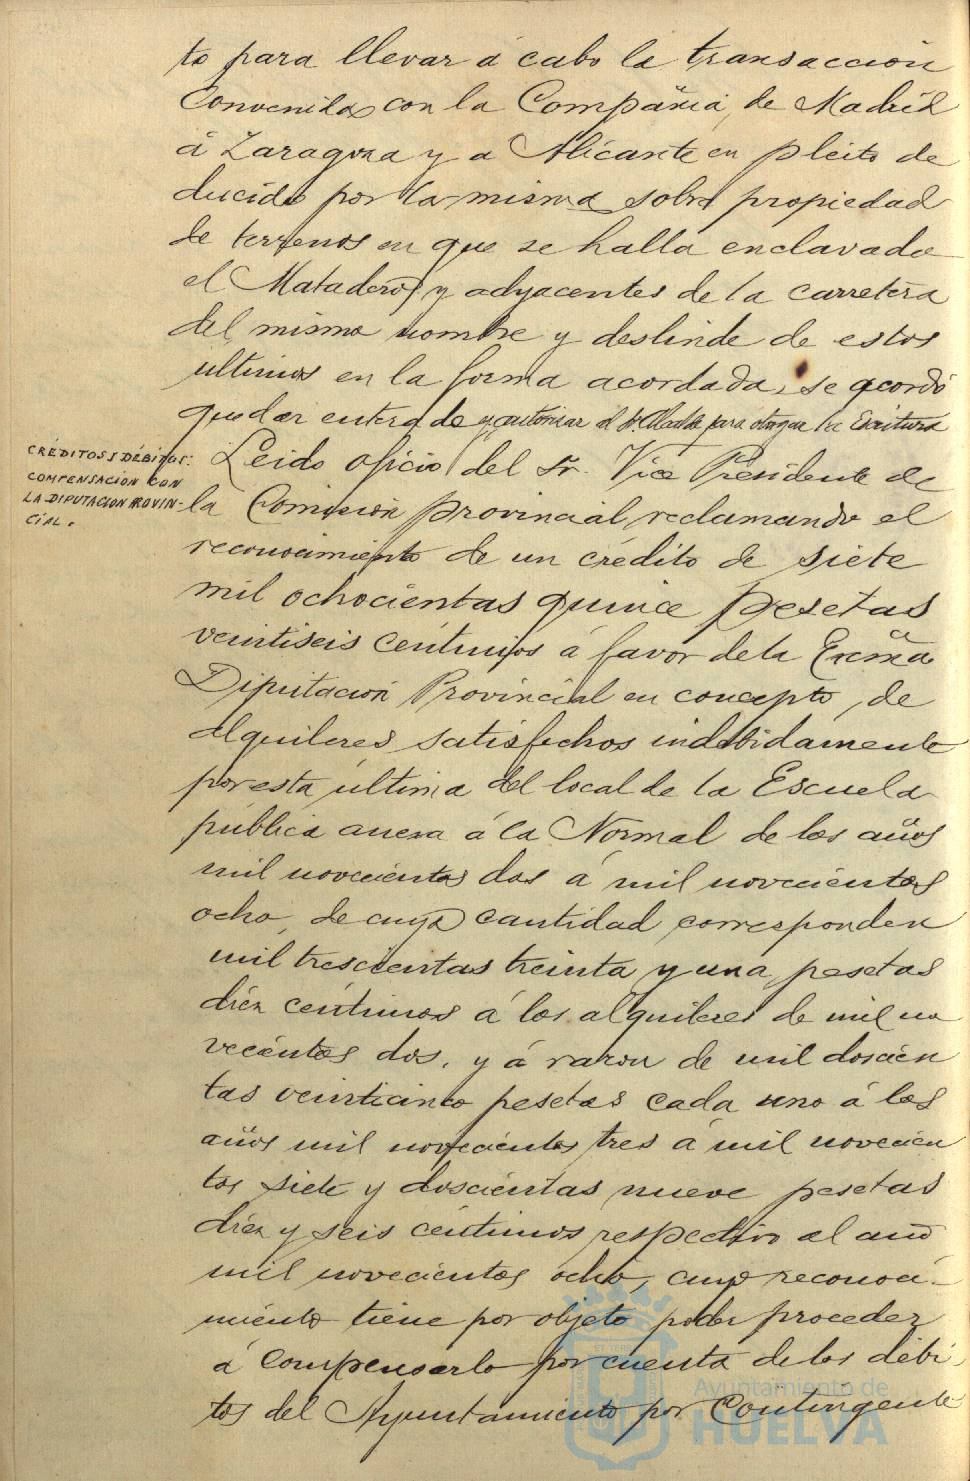 to para llevar á cabo la transacción
convenida con la Compañia, de Madrid
á Zaragoza y a Alicante en pleito de
ducido por la misma sobre propiedad
de terrenos en que se halla enclavado
el Matadero y adyacentes de la carretera
del mismo nombre y deslinde de estos
ultimos en la forma acordada, se acordó
quedar enterado y autorizar al Sr. Alcalde para otorgar la Escritura
CRÉDITOS Y DÉBITOS:
COMPENSACIÓN CON
LA DIPUTACION PROVIN-
CIAL.
Leido oficio del Sr. Vice Presidente de
la Comisión provincial reclamando el
reconocimiento de un crédito de siete
mil ochocientas quince pesetas
veintiseis céntimos á favor de la Excma
Diputación Provincial en concepto, de
alquileres satisfechos indebidamente
por esta última del local de la Escuela
pública anexa á la Normal de los años
mil novecientos dos á mil novecientos
ocho, de cuya cantidad corresponden
mil trescientas treinta y una pesetas
diez céntimos á los alquileres de mil no
vecientos dos, y á razon de mil doscien
tas veinticinco pesetas cada uno á los
años mil novecientos tres á mil novecien
tos siete y doscientas nueve pesetas
diez y seis céntimos respectivo al año
mil novecientos ocho, cuyo reconoci-
miento tiene por objeto poder proceder
á compensarlo por cuenta de los débi
tos del Ayuntamiento por Contingente
Ayuntamiento de
HUELVA